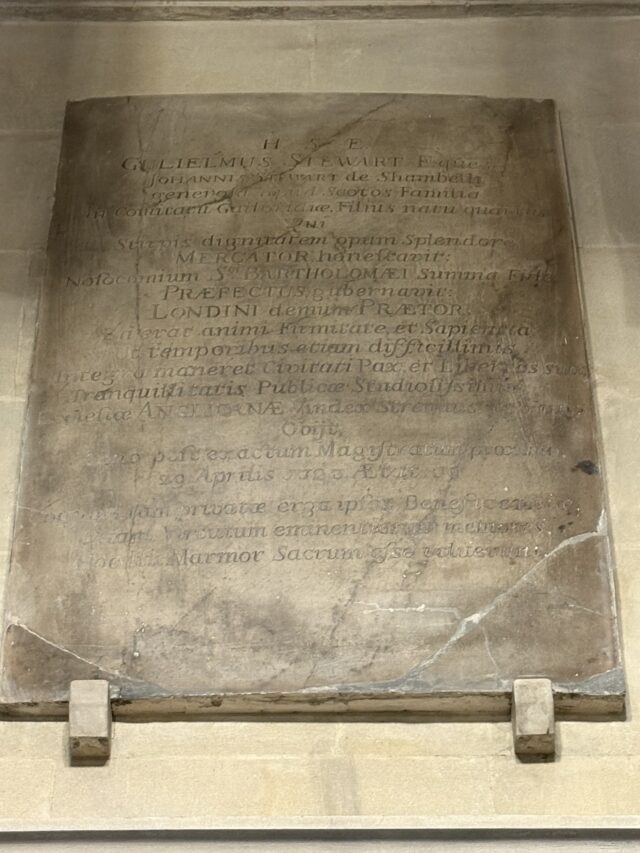 H S E
GULIELMUS STEWART Eques
JOHANNIS STEWART de Shambelly
generosa apud Scotos Familia
in Comitatu Gallovidiæ, Filius natu quartus
Qui
Stirpis dignitatem opum Splendore
MERCATOR honestavit:
Nosocomium Sti. BARTHOLOMÆI Summa Fide
PRÆFECTUS gubernavit:
LONDINI demum PRÆTOR.
Ea erat animi Firmitate, et Sapientia
ut temporibus etiam difficillimis
Integra maneret Civitati Pax, et Libertas sua
Tranquillitatis Publicæ Studiosissimus
Ecclesiæ ANGLICANÆ Vindex Strenuus
Obijt,
post exactum Magistratum proximo,
29 Aprilis Ætat.
privatæ erga ipsos Beneficentiæ
Virtutum memores
Hoc Marmor Sacrum esse voluerunt